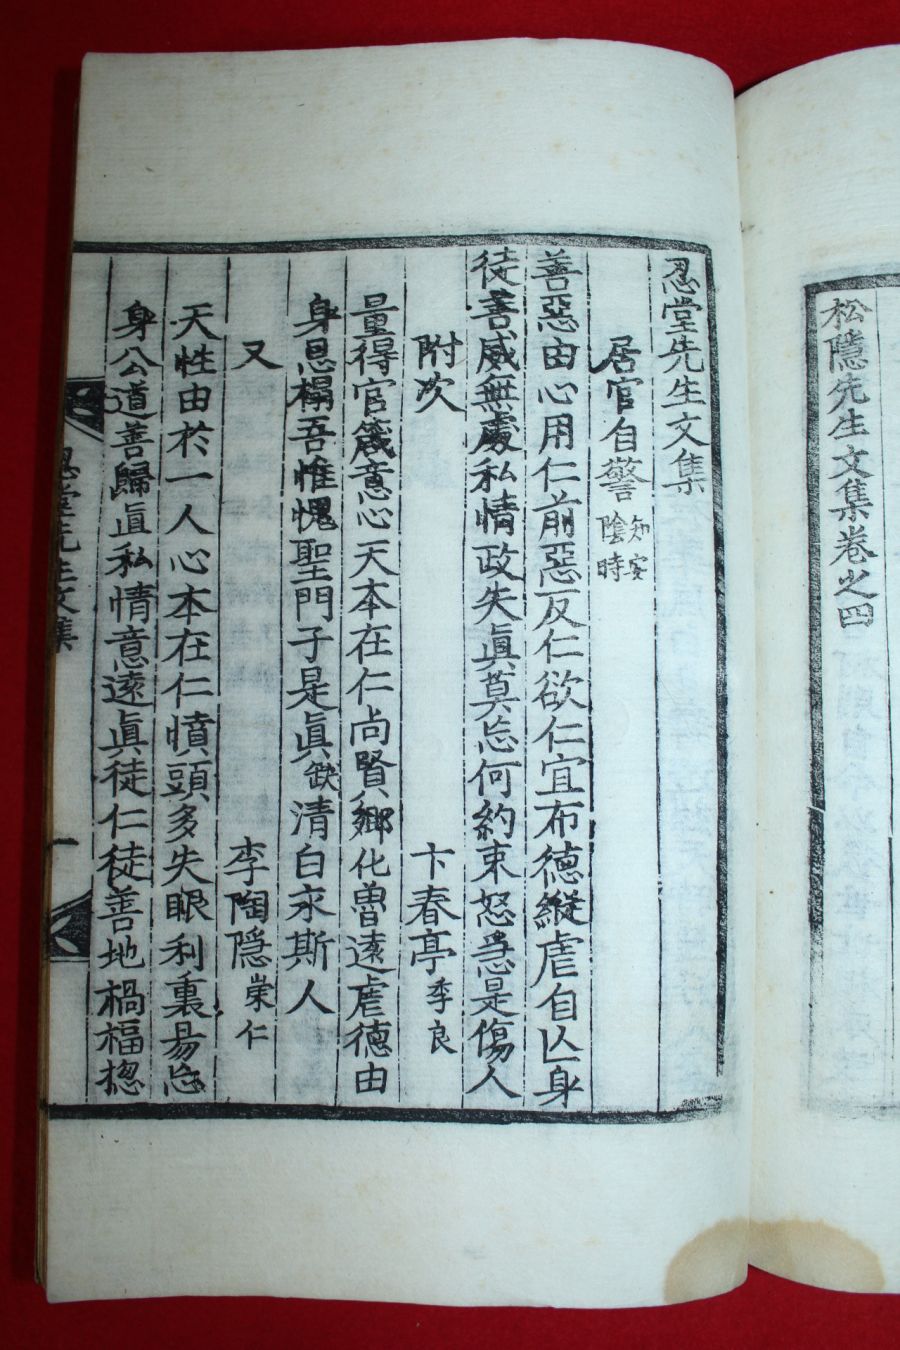 松隱先生文集卷之四
忍堂先生文集
居官自警 知安陰時
善惡由心用仁前惡反仁欲仁宜布德縱虐自亾身
徒善威無處私情政失眞莫忘何約束怒急是傷人
附次 卞春亭 季良
量得官箴意心天本在仁尚賢鄕化曾遠虐德由
身思榻吾惟愧聖門子是眞缺清白永斯人
又 李陶隱 崇仁
天性由於一人心本在仁憤頭多失眼利裏易忘
身公道善歸眞私情意遠眞徒仁徒善地禍福揔
忍堂先生文集 一